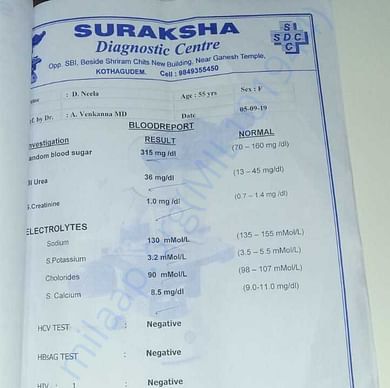 SURAKSHA
Diagnostic Centre
S I
S D C
C
Opp. SBI, Beside Shriram Chits New Building, Near Ganesh Temple,
KOTHAGUDEM. Cell : 9849355450
: D. Neela Age : 55 yrs Sex : F
by Dr. : A. Venkanna MD Date 05-09-19
BLOODREPORT
nvestigation RESULT NORMAL
andom blood sugar 315 mg /dl (70 – 160 mg /dl)
Urea 36 mg/dl (13 – 45 mg/dl)
S.Creatinine 1.0 mg /dl (0.7 – 1.4 mg /dl)
ELECTROLYTES
Sodium 130 mMol/L (135 – 155 mMol/L)
S.Potassium 3.2 mMol/L (3.5 – 5.5 mMol/L)
Cholorides 90 mMol/L (98 – 107 mMol/L)
S. Calcium 8.5 mg/dl (9.0-11.0 mg/dl)
HCV TEST : Negative
HBsAG TEST : Negative
HIV : 1 : Negative